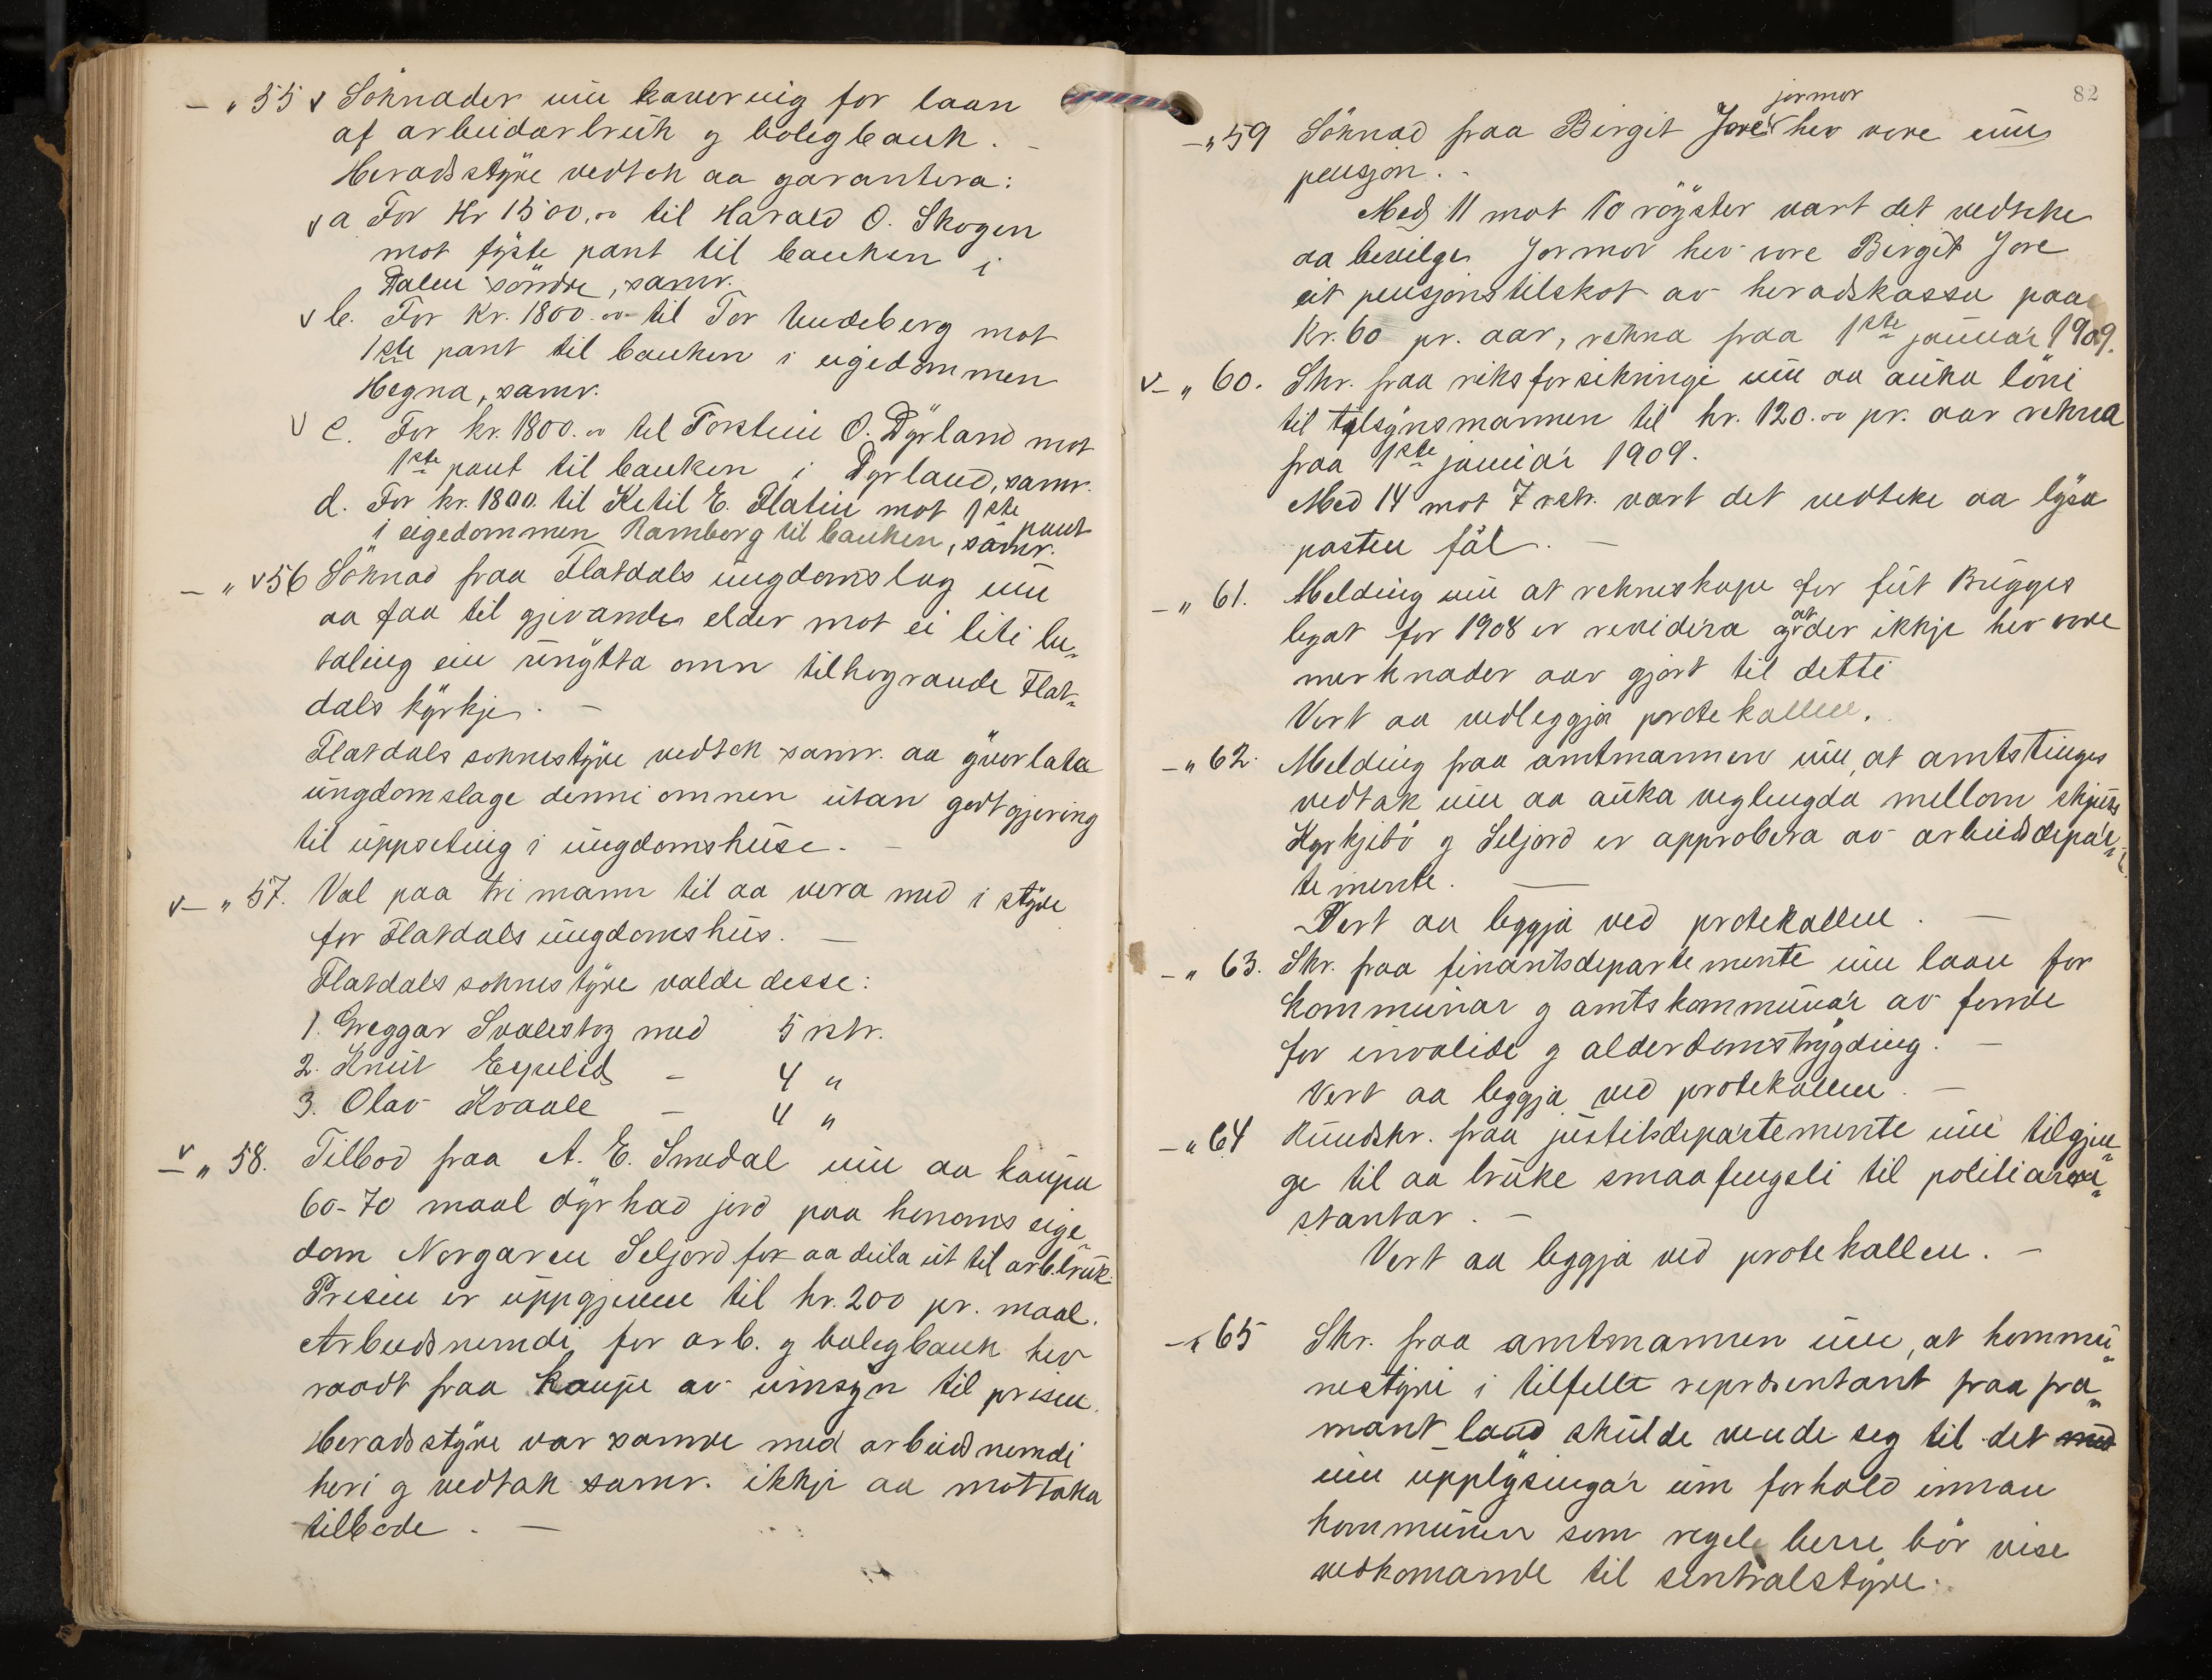 — „ 55 v Söknader um kavering for laan
af arbeidarbruk g boligbank. –
Heradsstyre vedtok aa garantera:
v a For Kr 1500,00 til Harald O. Skogen
mot fyste pant til banken i
Dalen söndre, samr.
v b. For Kr. 1800.00 til Tor Undeberg mot
1ste pant til banken i eigedommen
Hegna, samr.
v c. For kr. 1800.00 til Torstein O. Dyrland mot
1ste pant til banken i Dyrland, samr.
d. For kr. 1800. til Ketil E. Flatin mot 1ste
pant
i eigedommen Ramberg til banken, samr.
— „ v 56 Söknad fraa Flatdals ungdomslag um
aa faa til gjevande elder mot ei liti be-
taling ein unytta omn tilhøyrande Flat-
dals kyrkje. —
Flatdals soknestyre vedtok samr. aa yverlata
ungdomslage denni omnen utan godtgjering
til uppseting i ungdomshuse. —
v — „ 57. Val paa tri mann til aa vera med i styre
for Flatdals ungdomshus. —
Flatdals soknestyre valde desse:
1. Greggar Svalestog med 5 rstr.
2. Knut Espelid — 4 „
3. Olav Kraale — 4 „
v — „ 58. Tilbod fraa A. E. Smedal um aa kaupa
60-70 maal dyrkad jord paa honoms eige
dom Norgaren Seljord for aa deila ut til arb.bruk.
Prisen er uppgjeven til kr. 200 pr. maal.
Arbeidsnemdi for arb. g boligbank hev
raadt fraa kaupe av umsyn til prisen.
Heradsstyre var samde med arbeidsnemdi
heri g vedtok samr. ikkje aa mottaka
tilbode. —
82
jormor
— „ 59 Söknad fraa Birgit Jore hev vore um
pensjon. –
Med 11 mot 10 röyster vart det vedteke
aa bevilge Jormor hev vore Birgit Jore
eit pensjonstilskot av heradskassa paa
Kr. 60 pr. aar, rekna fraa 1ste januar 1909.
v — „ 60. Skr. fraa riksforsikringi um aa auka löni
til tilsynsmannen til kr. 120.00 pr. aar rekna
fraa 1ste januar 1909.
Med 14 mot 7 rstr. vart det vedteke aa lysa
posten fål. —
— „ 61. Melding um at rekneskape for fut Brugges
legat for 1908 er revidera g at der ikkje hev vore
merknader aav gjort til dette
Vert aa vedleggja protekallen.
— „ 62. Melding fraa amtmannen um, at amtstinges
vedtak um aa auka veglengda mellom skjuts
Kyrkjebö g Seljord er approbera av arbeidsdepar-
temente. —
Vert aa leggja ved protekallen. —
— „ 63. Skr. fraa finantsdepartemente um laan for
kommunar g amtskommunar av fonde
for invalide g alderdomstrygding. —
Vert aa leggja ved protekallen. —
— „ 64 Rundskr. fraa justitsdepartemente um tilgjen-
ge til aa bruke smaafengsli til politiarre-
stantar. —
Vert aa leggja ved protekallen. —
— „ 65 Skr. fraa amtmannen um, at kommu-
nestyri i tilfelle representant fraa fra-
mant land skulde vende seg til det med
um upplysingar um forhold innan
kommunen som regel berre bör vise
vedkomande til sentralstyre.